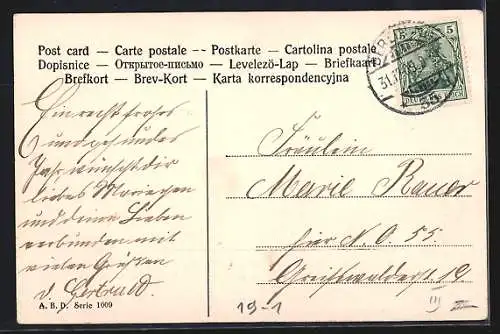 Post card — Carte postale -- Postkarte — Cartolina postale
Dopisnice — Открытое-письмо — Levelező-Lap — Briefkaart
Brefkort — Brev-Kort — Karta korrespondencyjna
5
Ein recht frohes
und gesundes
Jahr wünscht dir
liebes Mariechen
und deinen Lieben
verbunden mit
vielen Grüßen
d. Gertrud
A. B. D. Serie 1009
Fräulein
Marie Bauer
hier N. O. 55.
Greifswalderst 19
III
19-1